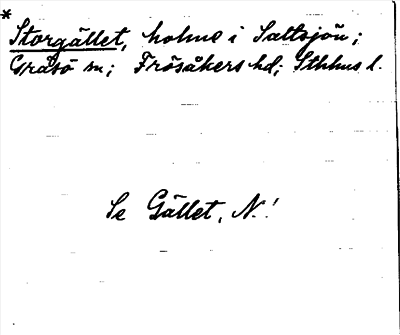 *
Storgället, holme i Saltsjön;
Gräsö sn; Frösåkers hd; Sthlms l.
Se Gället, N.!